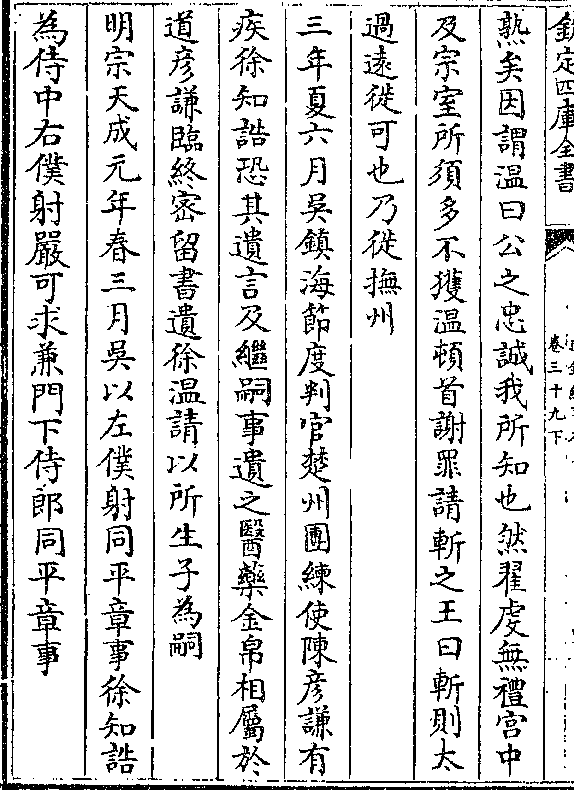 欽定四庫全書
卷三十九下
熟矣因謂溫曰公之忠誠我所知也然翟虔無禮宮中
及宗室所須多不獲溫頓首謝罪請斬之王曰斬則太
過遠徙可也乃徙撫州
三年夏六月吳鎮海節度判官楚州團練使陳彦謙有
疾徐知誥恐其遺言及繼嗣事遺之醫藥金帛相屬於
道彦謙臨終密留書遺徐溫請以所生子為嗣
明宗天成元年春三月吳以左僕射同平章事徐知誥
為侍中右僕射嚴可求兼門下侍郎同平章事